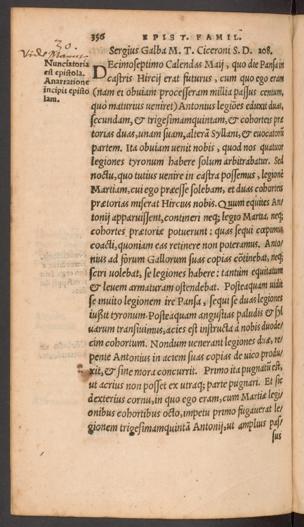 356 EPIST. FAMIL.
30.
Sergius Galba M. T. Ciceroni S. D. 208.
Nunciatoria
est epistola.
A narratione
incipit episto
lam.
DEcimoseptimo Calendas Maij, quo die Pansa in
castris Hircij erat futurus, cum quo ego eram
(nam ei obuiam processeram millia passus centum,
quo maturius ueniret) Antonius legiões eduxit duas,
secundam, & trigesimamquintam, & cohortes præ
torias duas, unam suam, alterã Syllani, & euocatorũ
partem. Ita obuiam uenit nobis, quod nos quatuor
legiones tyronum habere solum arbitrabatur. Sed
noctu, quo tutius uenire in castra possemus, legionẽ
Martiam, cui ego præesse solebam, et duas cohortes
prætorias miserat Hircus nobis. Quum equites An-
tonij apparuissent, contineri neq; legio Martia, neq;
cohortes prætoriæ potuerunt: quas sequi cœpimus
coacti, quoniam eas retinere non poteramus. Anto-
nius ad forum Gallorum suas copias cõtinebat, neq;
sciri uolebat, se legiones habere: tantùm equitatum
& leuem armaturam ostendebat. Postea quam uidit
se inuito legionem ire Pansa, sequi se duas legiones
iußit tyronum. Postea quam angustias paludis & syl
uarum transiuimus, acies est instructa à nobis duode/
cim cohortium. Nondum uenerant legiones duæ, re/
pente Antonius in aciem suas copias de uico produ/
xit, & sine mora concurrit. Primo ita pugnatũ est,
ut acrius non posset ex utraq; parte pugnari. Et si
dexterius cornu, in quo ego eram, cum Martiæ legi/
onibus cohortibus octo, impetu primo fugauerat le/
gionem trigesimamquintã Antonij, ut amplius pas/
sus